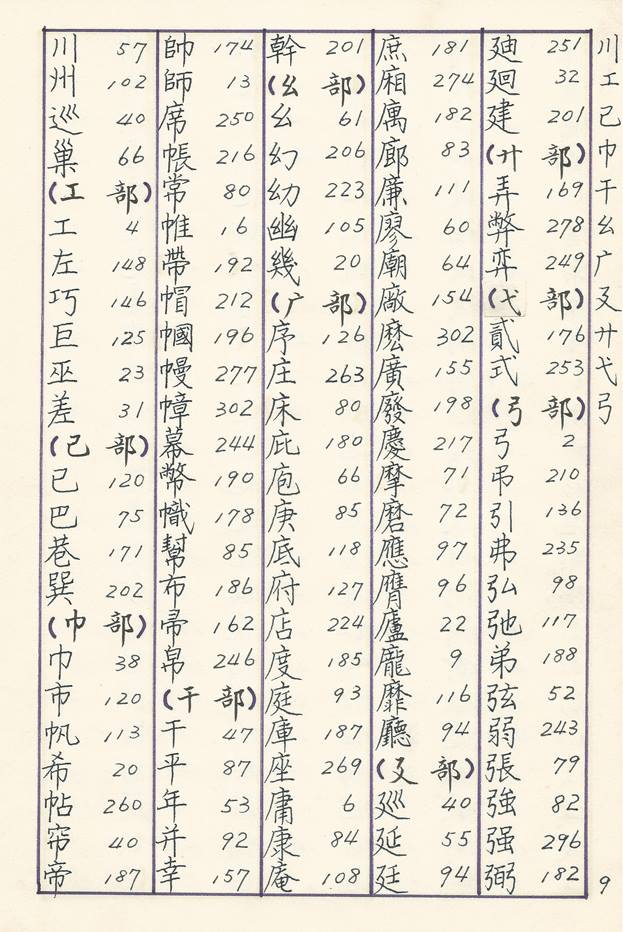 川 57
州 102
巡 40
巢 66
(工 部)
工 4
左 148
巧 146
巨 125
巫 23
差 31
(己 部)
已 120
巴 75
巷 171
巽 202
(巾 部)
巾 38
市 120
帆 113
希 20
帖 260
帘 40
帝 187
帥 174
師 13
席 250
帳 216
常 80
帷 16
帶 192
帽 212
幗 196
幔 277
幛 302
幕 244
幣 190
幟 178
幫 85
布 186
帚 162
帛 246
(干 部)
干 47
平 87
年 53
并 92
幸 157
幹 201
(幺 部)
幺 61
幻 206
幼 223
幽 105
幾 20
(广 部)
序 126
庄 263
床 80
庇 180
庖 66
庚 85
底 118
府 127
店 224
度 185
庭 93
庫 187
座 269
庸 6
康 84
庵 108
庶 181
廂 274
廣 182
廊 83
廉 111
廖 60
廟 64
廠 154
麽 302
廣 155
廢 198
慶 217
摩 71
磨 72
應 97
膺 96
廬 22
龐 9
靡 116
廳 94
(廴 部)
巡 40
延 55
廷 94
廸 251
廻 32
建 201
(廾 部)
弄 169
弊 278
弈 249
(弋 部)
貳 176
式 253
(弓 部)
弓 2
弔 210
引 136
弗 235
弘 98
弛 117
弟 188
弦 52
弱 243
張 79
強 82
强 296
弼 182
川
工
己
巾
干
幺
广
廴
廾
弋
弓
9